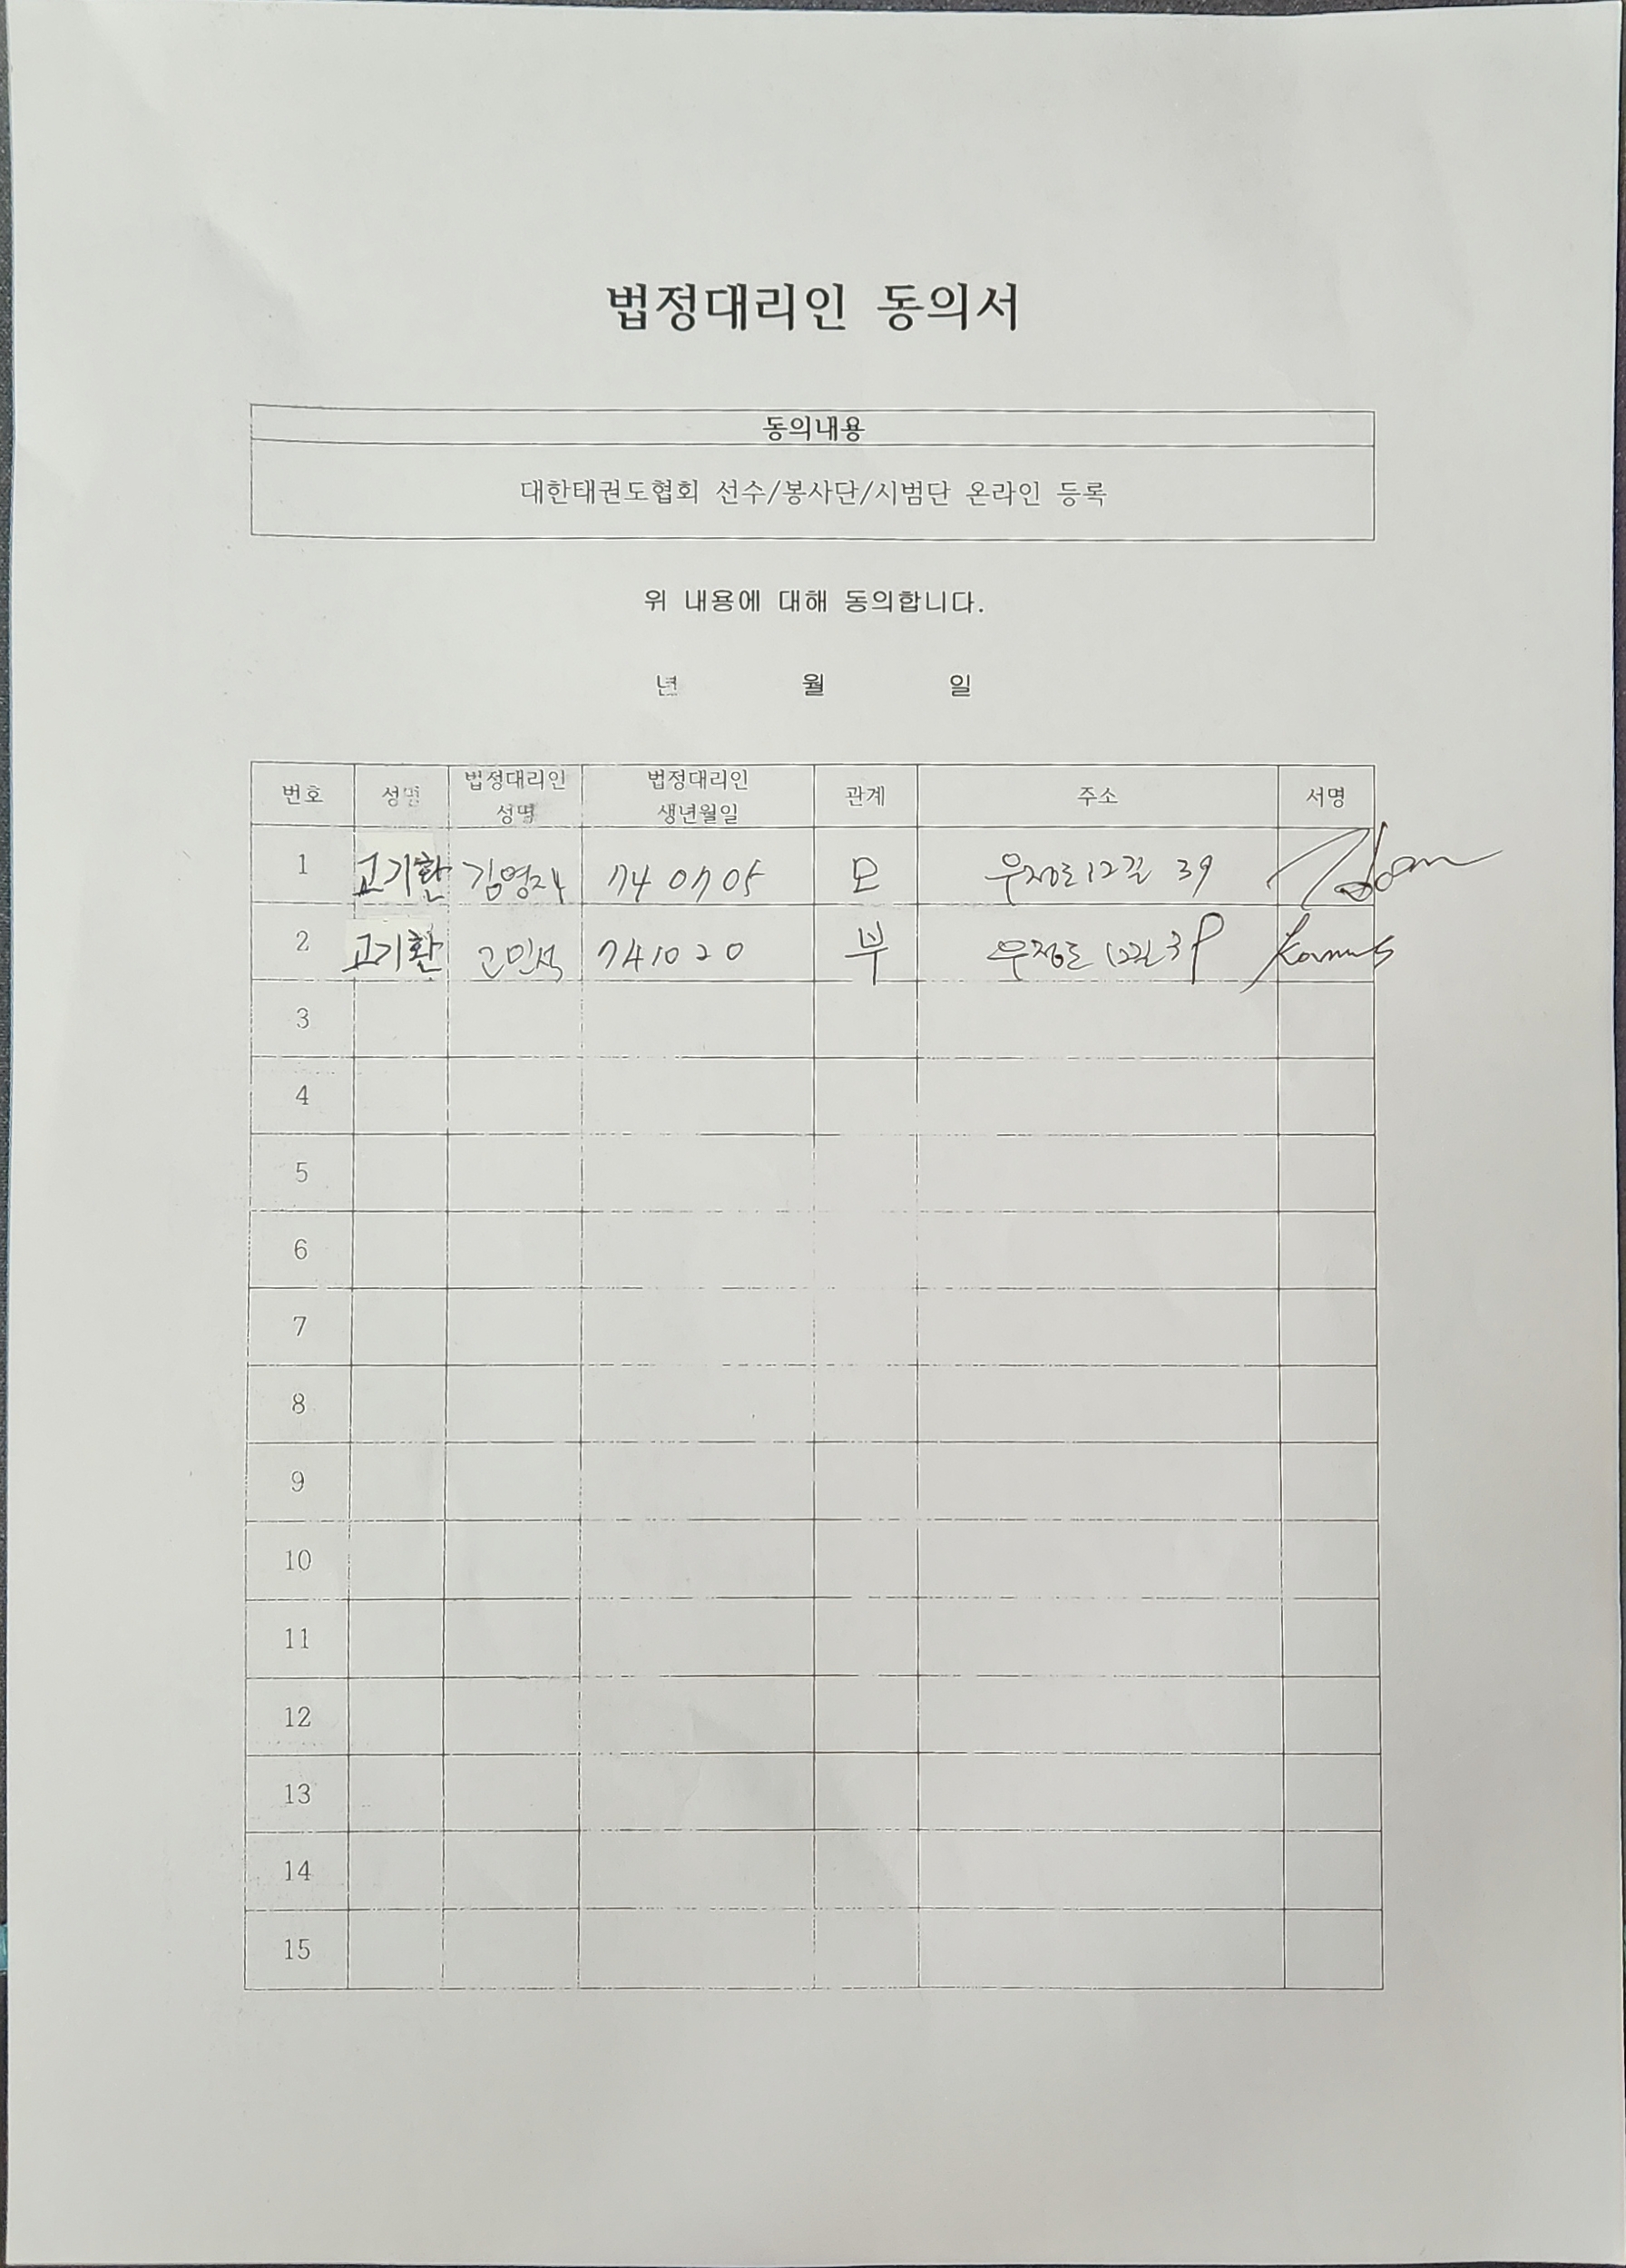 법정대리인 동의서
동의내용
대한태권도협회 선수/봉사단/시범단 온라인 등록
위 내용에 대해 동의합니다.
년 월 일
번호 성명 법정대리인 성명 법정대리인 생년월일 관계 주소 서명
1 고기환 김영자 740705 모 우정로12길 39
2 고기환 고민석 741020 부 우정로 12길 39
3
4
5
6
7
8
9
10
11
12
13
14
15